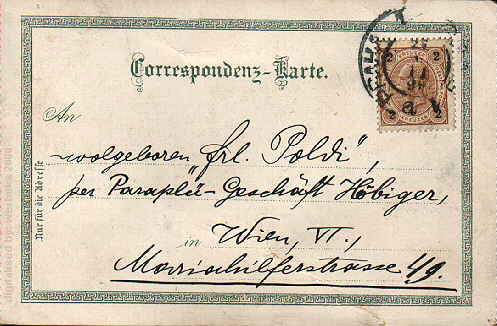 Correspondenz-Karte.
2 2
2 2
An
wolgeboren "frl. Poldi",
per Paraplü-Geschäft Höbiger,
in Wien, VI.,
Mariahilferstrasse 49.
Nur für die Adresse